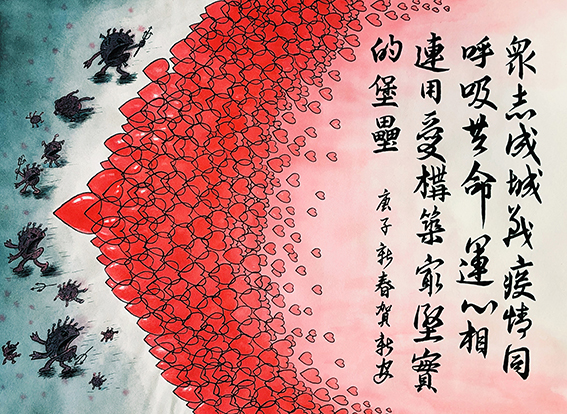 衆志成城戰疫情同
呼吸共命運心相
連用愛構築最堅實
的堡壘
庚子新春賀新安